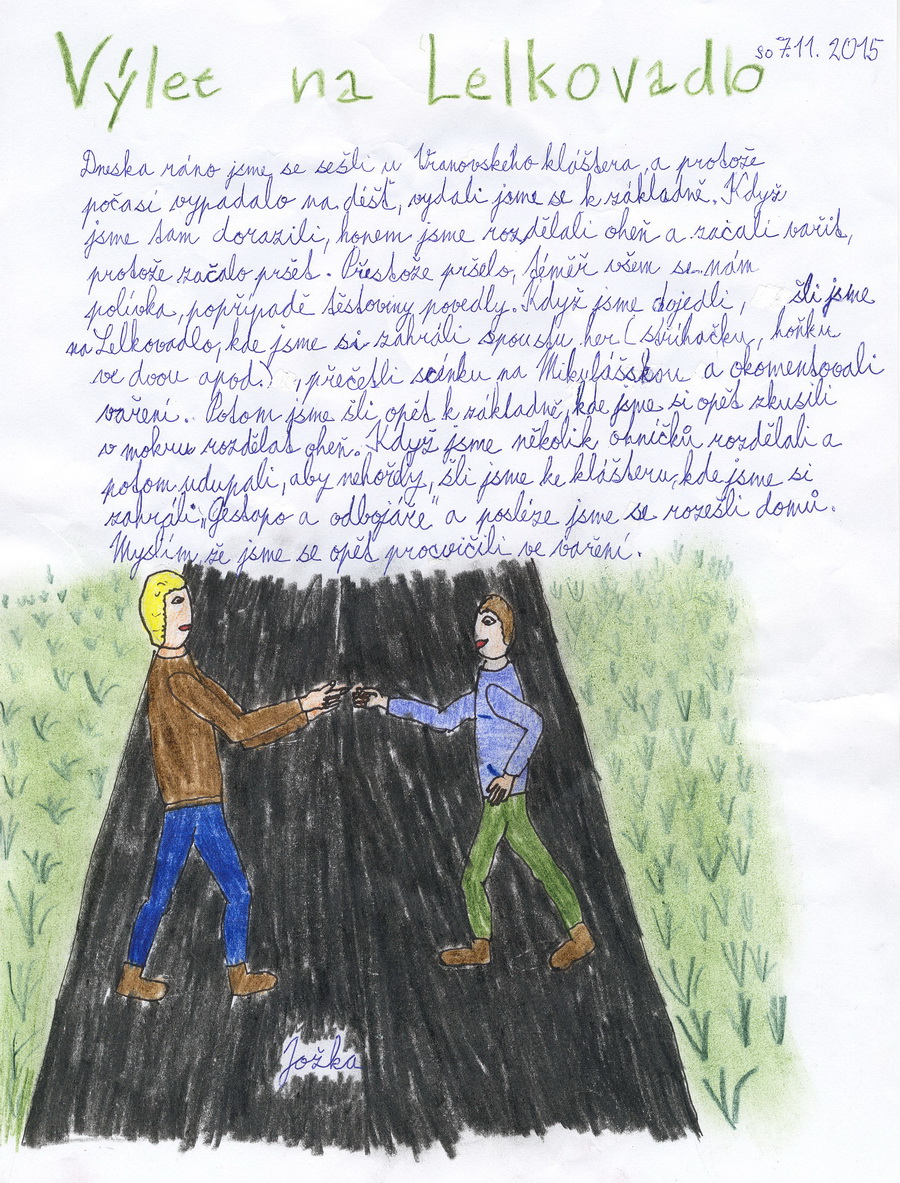 Výlet na Lelkovadlo
so 7.11. 2015
Dneska ráno jsme se sešli u Vranovského kláštera, a protože
počasí vypadalo na déšť, vydali jsme se k základně. Když
jsme tam dorazili, honem jsme rozdělali oheň a začali vařit,
protože začalo pršet. Přestože pršelo, téměř všem se nám
polívka, popřípadě těstoviny povedly. Když jsme dojedli, šli jsme
na Lelkovadlo, kde jsme si zahráli spoustu her (stříhačku, hoňku
ve dvou apod.), přečetli scénku na Mikulášskou a okomentovali
vaření. Potom jsme šli opět k základně, kde jsme si opět zkusili
v mokru rozdělat oheň. Když jsme několik ohníčků rozdělali a
potom udupali, aby nehořely, šli jsme ke klášteru, kde jsme si
zahráli „Gestapo a odbojáře" a posléze jsme se rozešli domů.
Myslím, že jsme se opět procvičili ve vaření.
Jožka